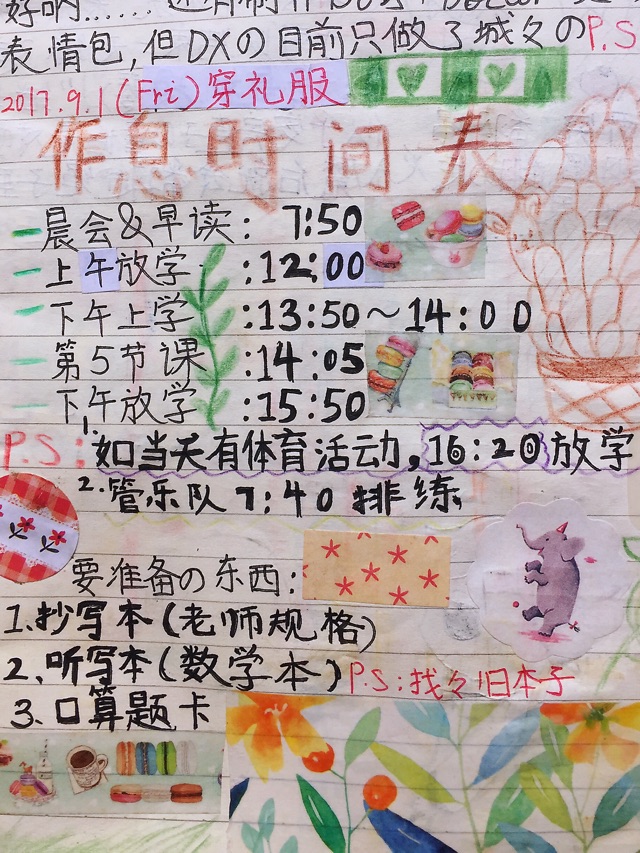 好啊……还有制作
表情包,但DXの目前只做了城々のP.S
2017.9.1(Fri)穿礼服
作息时间表
晨会&早读: 7:50
上午放学:12:00
下午上学:13:50~14:00
第5节课:14:05
下午放学:15:50
P.S:1.如当天有体育活动,16:20放学
2.管乐队7:40排练
要准备の东西:
1.抄写本(老师规格)
2.听写本(数学本)P.S:找々旧本子
3.口算题卡